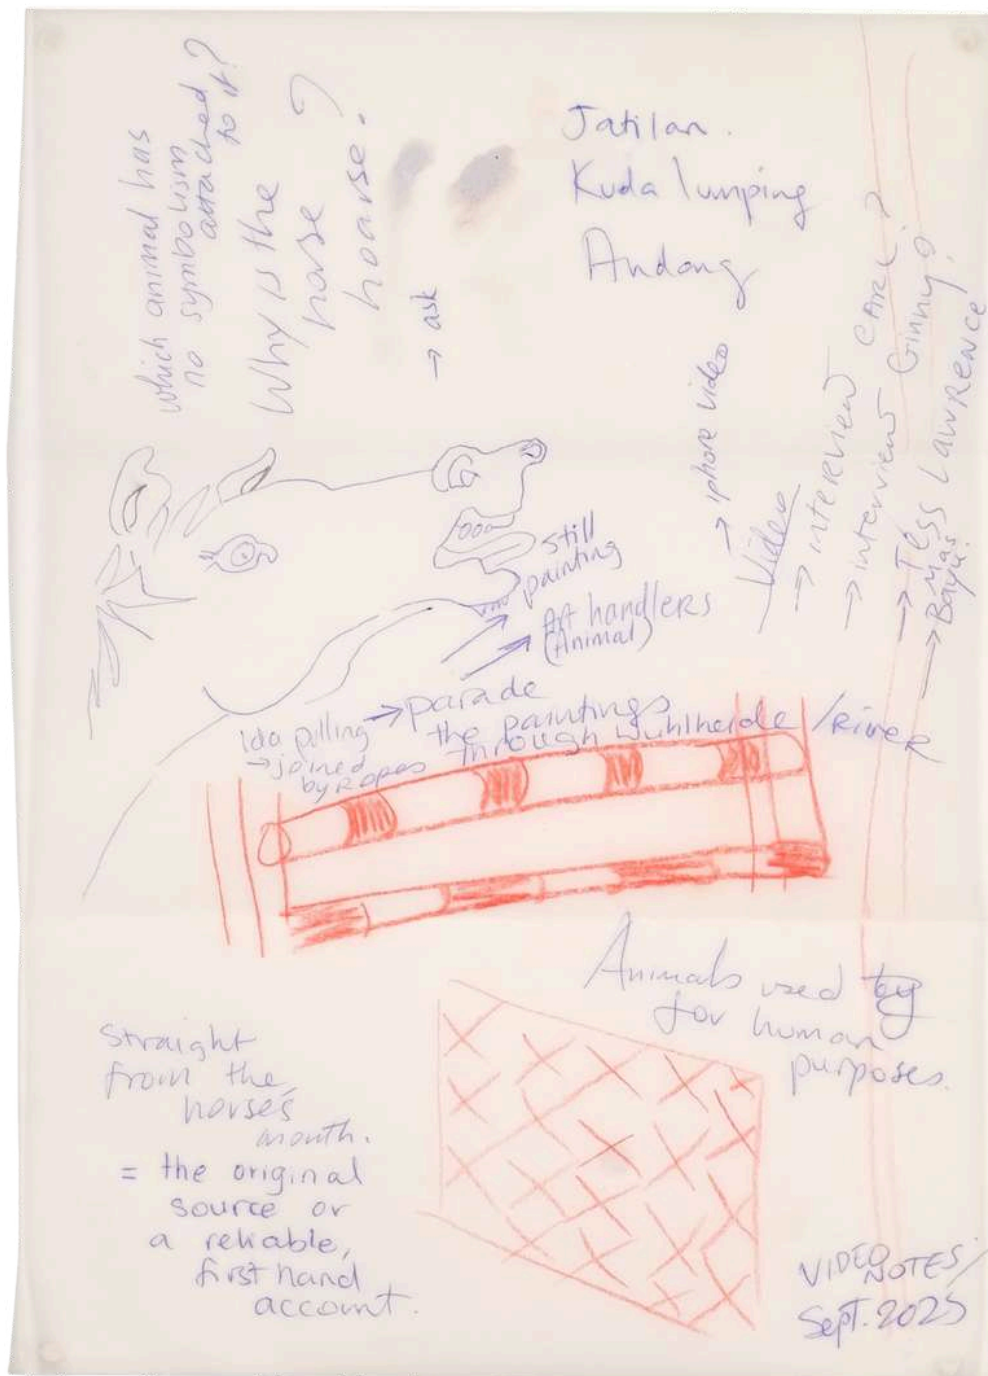 which animal has
no symbolism
attached
to it?
Why is the
horse?
hoarse?
→ ask
Jatilan.
Kuda lumping
Andong
→ iphone video
Video
→ interview CARL?
→ interview Ginny?
→ TESS LAWRENCE
→ Mas
Bayu.
Still
painting
Art handlers
(Animal)
→ parade
the paintings
through wuhlheide / RiveR
Ida pilling
→ joined
by Ropes
Animals used by
for human
purposes.
Straight
from the
horse's
mouth.
= the original
source or
a reliable,
first hand
account.
VIDEO NOTES/
Sept. 2025